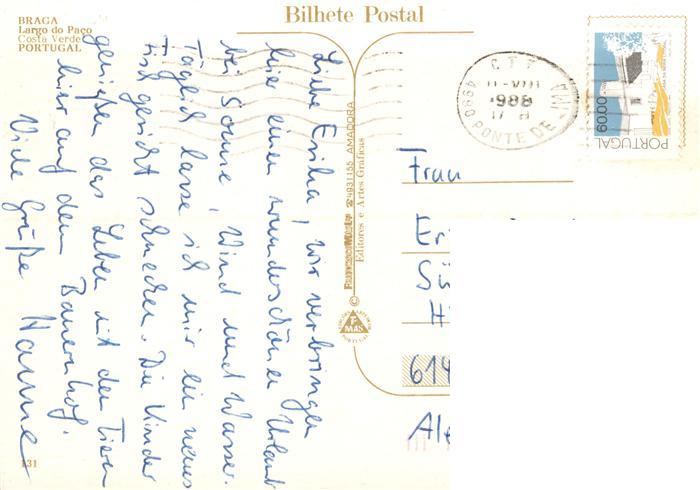 BRAGA
Largo do Paço
Costa Verde
PORTUGAL
Bilhete Postal
Liebe Erika, wir verbringen
hier einen wunderschönen Urlaub
bei Sonne, Wind und Wasser.
Täglich lasse ich mir ein neues
Fischgericht schmecken. Die Kinder
genießen das Leben mit den Tieren
hier auf dem Bauernhof.
Viele Grüße Hanne
131
☎4931155 AMADORA
Editores e Artes Gráficas
©
FMAS
PORTUGAL
CTT
1988
4990 PONTE DE
60.00
PORTUGAL
Frau
Er
Sü
H
614
Al